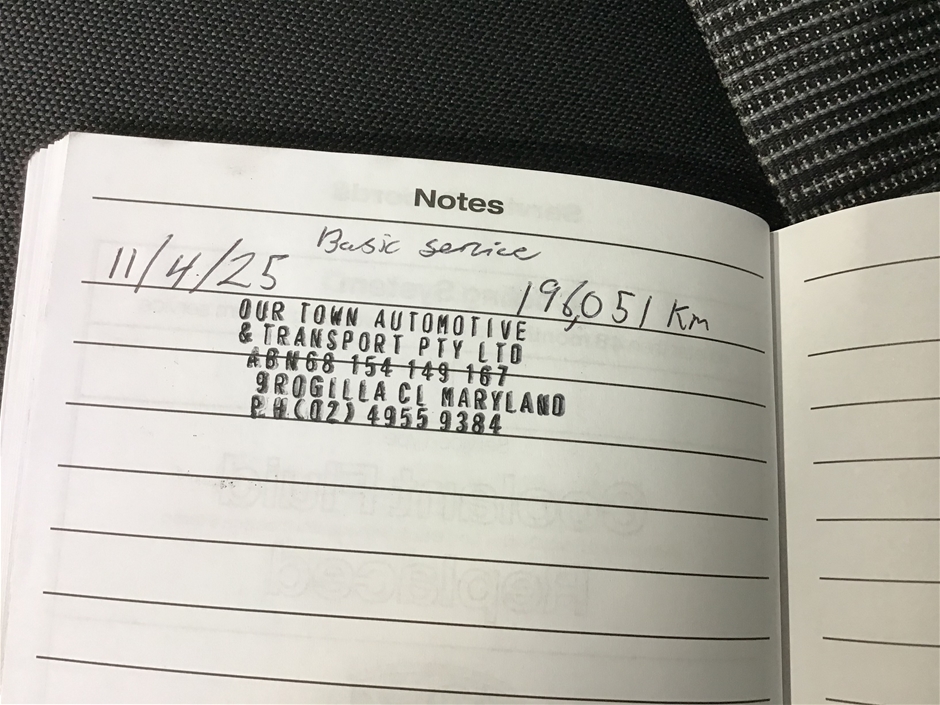 Notes
Basic service
11/4/25 196,051 Km
OUR TOWN AUTOMOTIVE
& TRANSPORT PTY LTD
ABN68 154 149 167
9ROGILLA CL MARYLAND
PH(02) 4955 9384